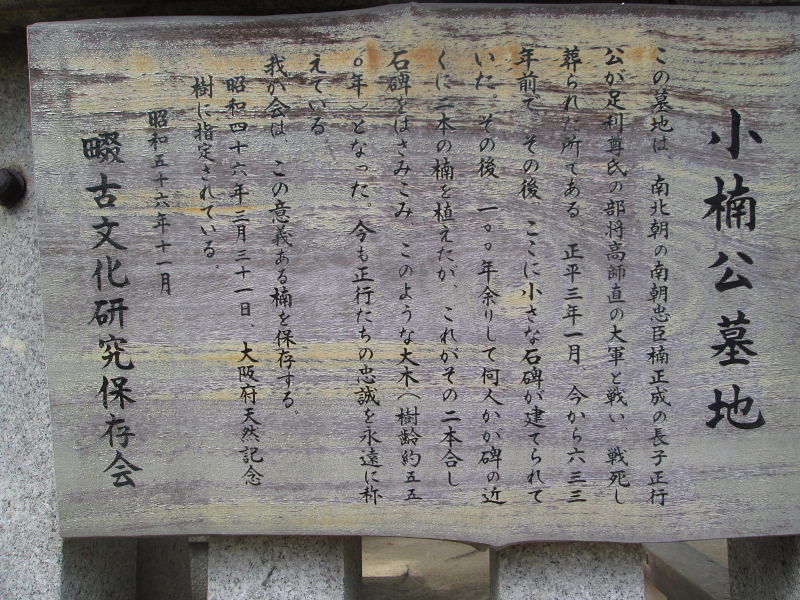 小楠公墓地
この墓地は、南北朝の南朝忠臣楠正成の長子正行
公が足利尊氏の部将高師直の大軍と戦い、戦死し
葬られた所である 正平三年一月、今から六三三
年前で、その後、ここに小さな石碑が建てられて
いた。その後、一〇〇年余りして何人かが碑の近
くに二本の楠を植えたが、これがその二本合し、
石碑をはさみこみ、このような大木へ樹齢約五五
〇年）となった。今も正行たちの忠誠を永遠に称
えている
我が会は、この意義ある楠を保存する。
昭和四十六年三月三十一日、大阪府天然記念
樹に指定されている。
昭和五十六年十一月
畷古文化研究保存会